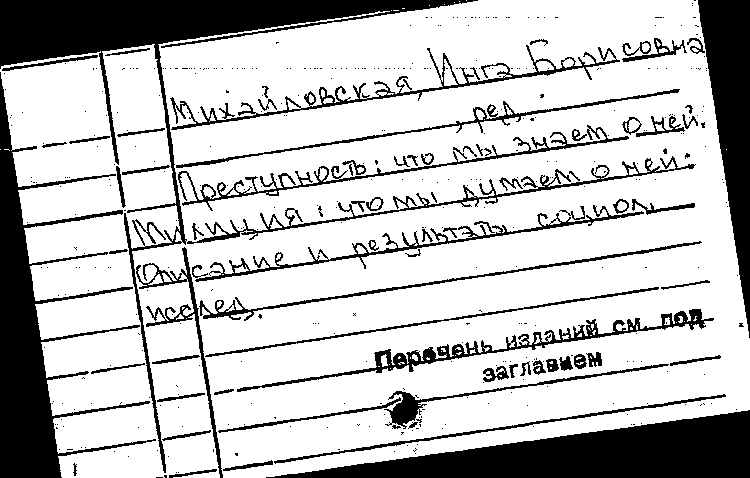 Михайловская, Инга Борисовна
, ред.
Преступность: что мы знаем о ней.
Милиция: что мы думаем о ней:
Описание и результаты социол.
исслед.
Перечень изданий см. под
заглавием